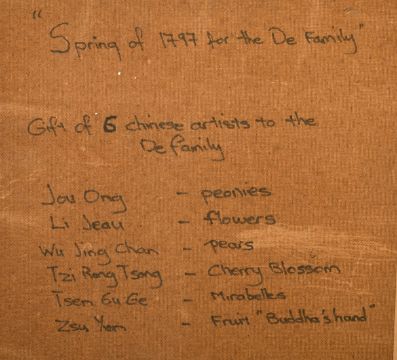 "Spring of 1797 for the De Family"
Gift of 6 chinese artists to the
De family
Jou Ong - peonies
Li Jeau - flowers
Wu Jing Chan - pears
Tzi Rong Tsong - Cherry Blossom
Tsen Gu Ge - Mirabelles
Zsu Yom - Fruit "Buddha's hand"